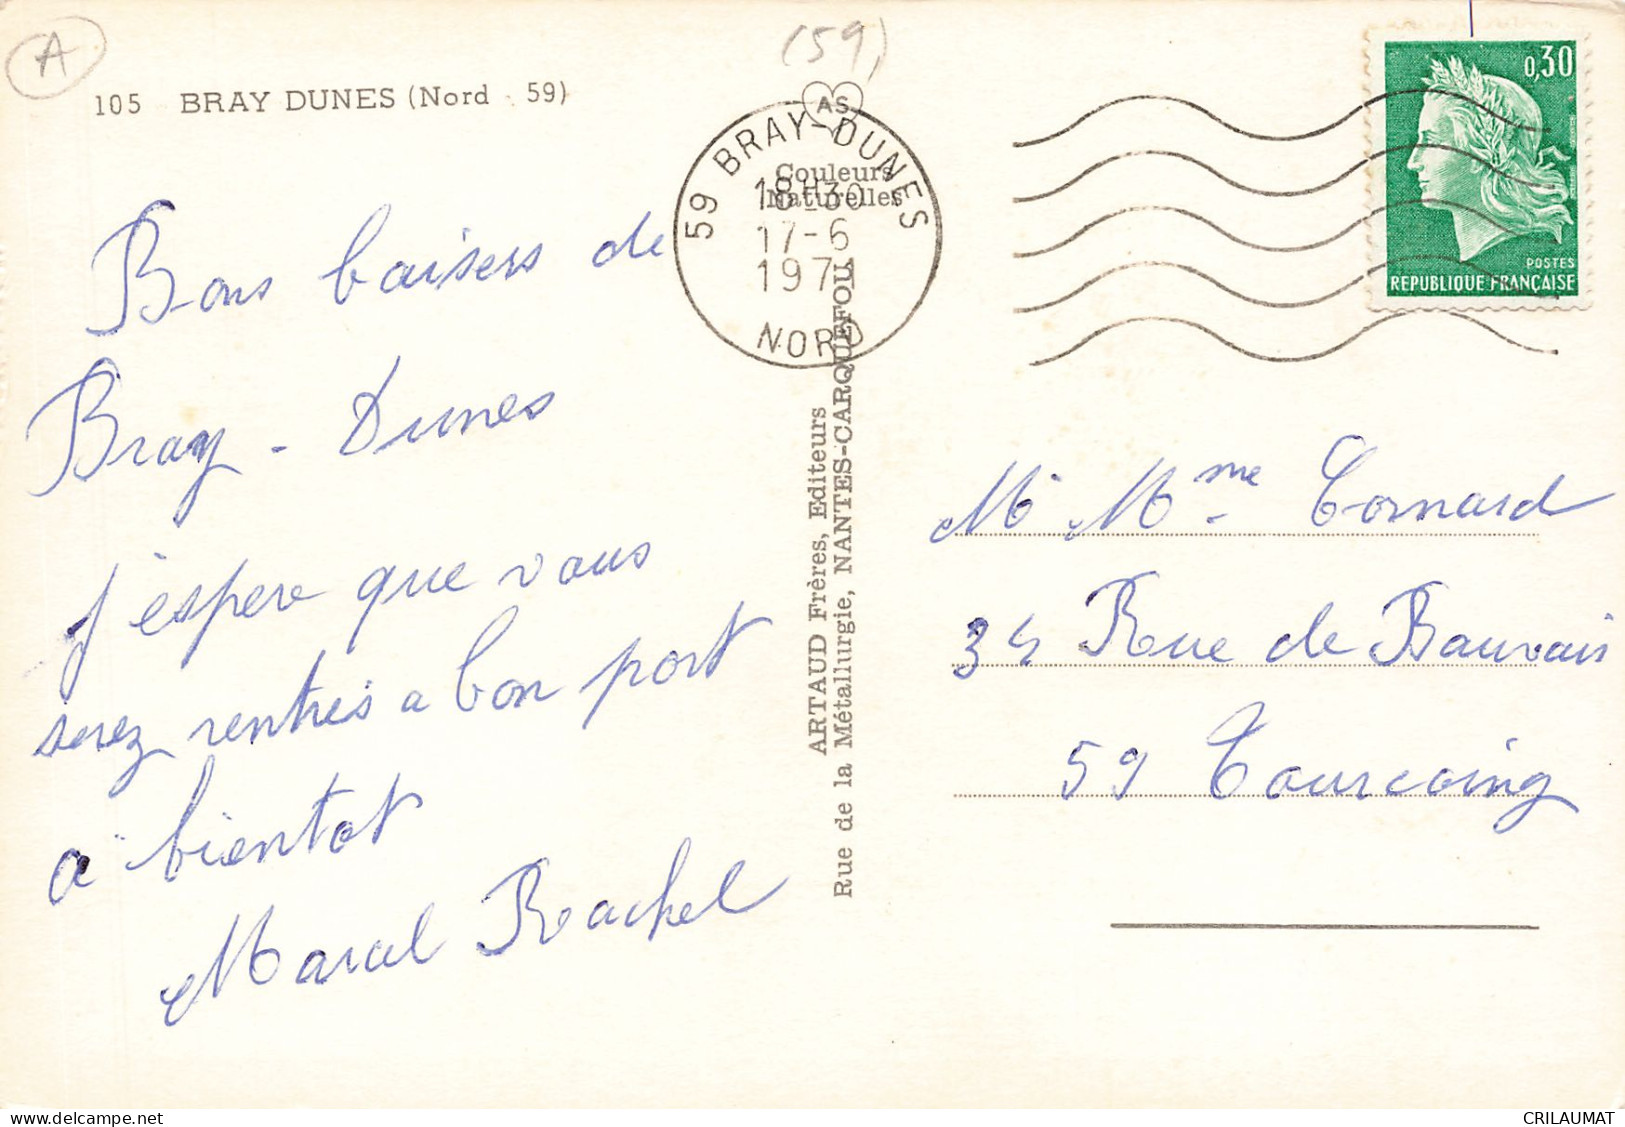 A
(59)
105 BRAY DUNES (Nord - 59)
AS
59 BRAY-DUNES
18H30
17-6
1971
NORD
Couleurs
Naturelles
0,30
POSTES
REPUBLIQUE FRANÇAISE
Bons baisers de
Bray - Dunes
j'espere que vous
serez rentrés a bon port
a bientot
Marcel Rachel
ARTAUD Frères, Editeurs
Rue de la Métallurgie, NANTES-CARQUEFOU
Mr Mme Cornard
34 Rue de Bauvais
59 Tourcoing
delcampe.net
CRILAUMAT